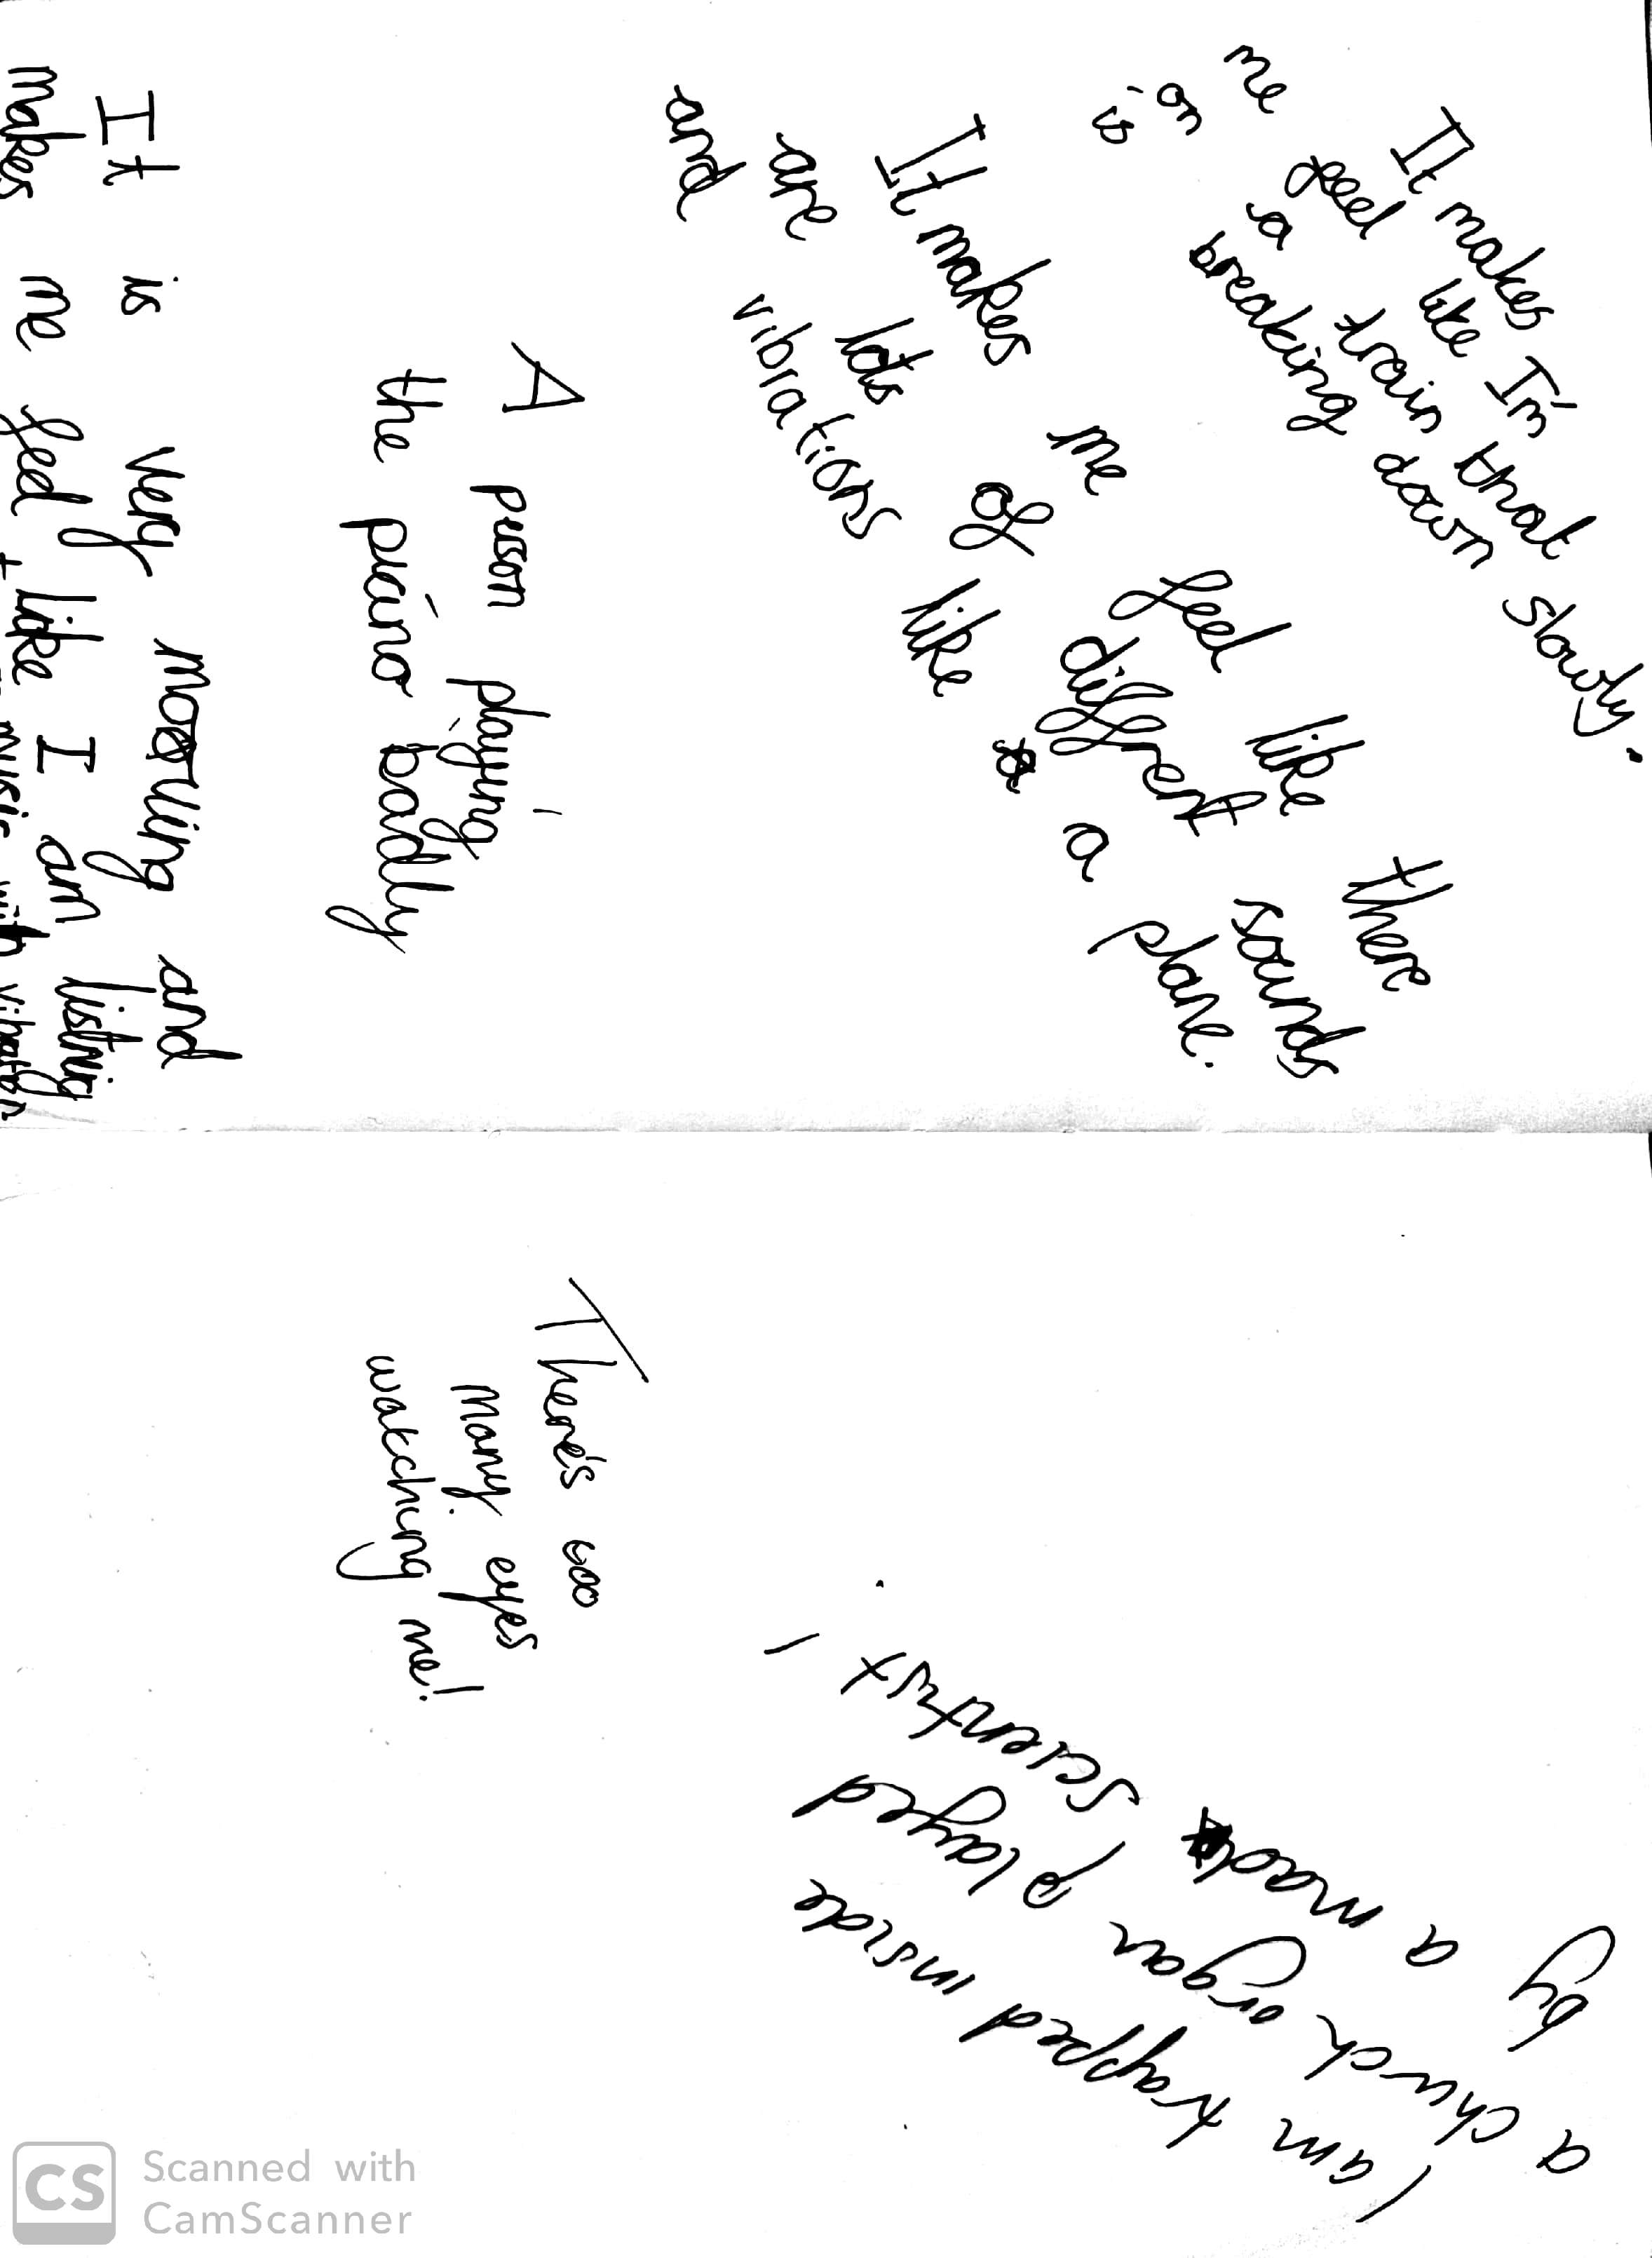 It makes
me feel like I'm
on a train that
is breaking down slowly.
It makes me feel like there
are lots of different sounds
and vibrations like a plane.
A person playing
the piano badly
It is very moving and
makes me feel like I am listnig
There's too
many eyes
watching me!
I am trapped inside
a church organ played
by a mad scientist!
CS
Scanned with
CamScanner